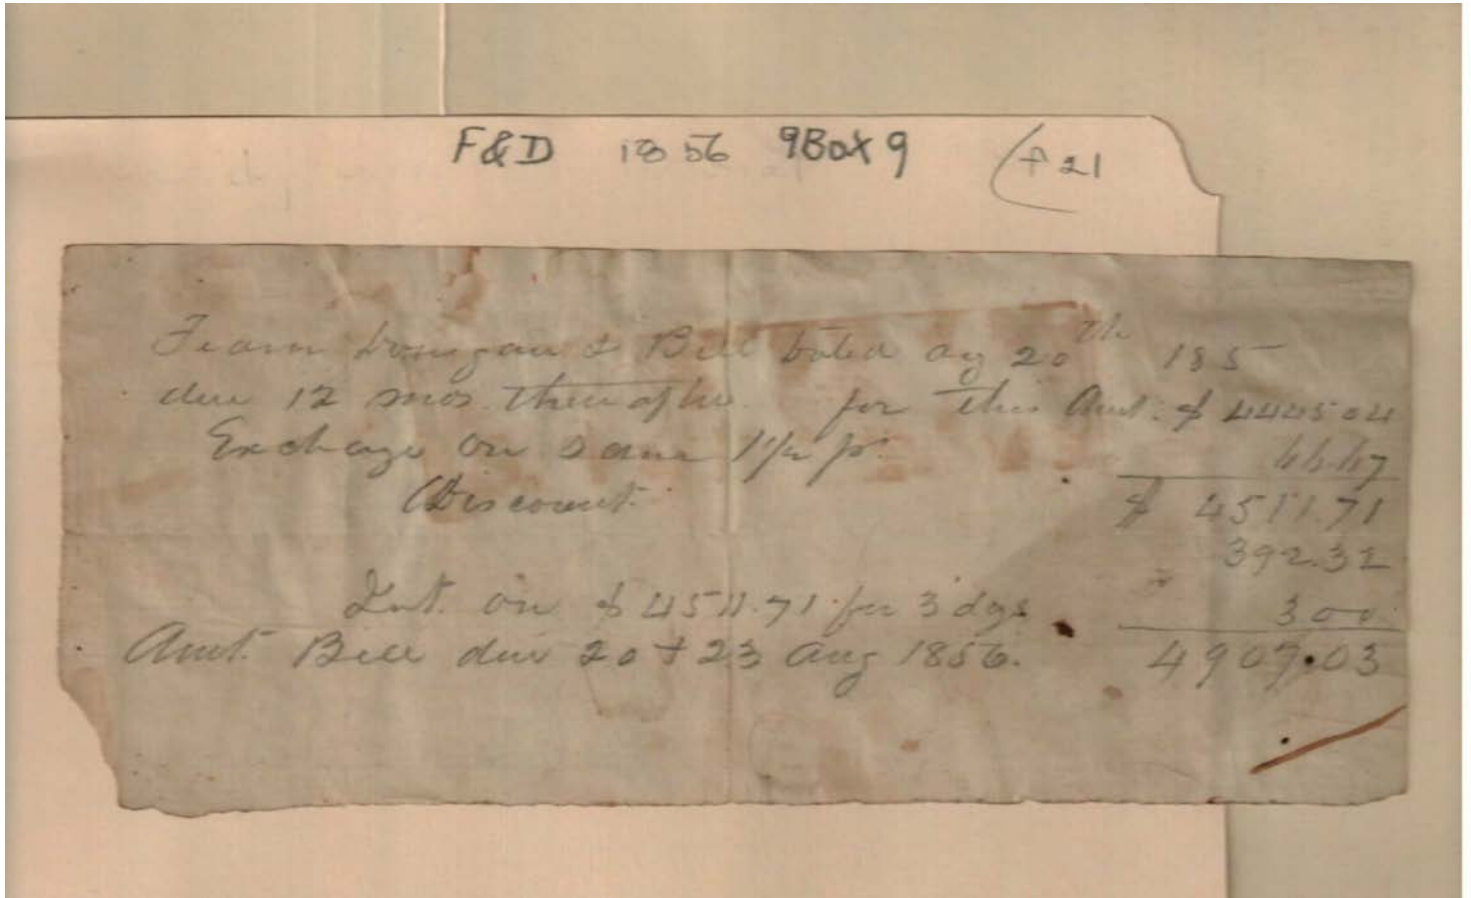 F&D 1856 9Box9 (f21
Fearn Donegan & Bill dated ag 20th 185
due 12 mos. thereafter. for this Amt: $ 4445 04
Exchage on same 1½ pr. 66.67
Discount. $ 4511.71
392.32
Int. on $ 4511.71 for 3 dys 3 00
Amt. Bill due 20 + 23 Aug 1856. 4907.03